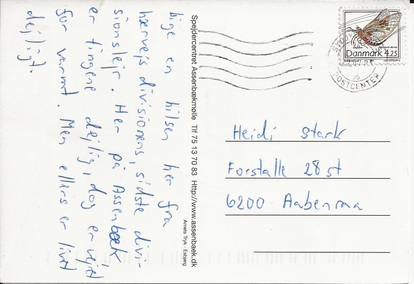 lige en hilsen her fra
hærvejs divisionens, sidste divi-
sionslejr. Her på Assenbæk
er tingene dejlig, dog er vejret
for varmt. Men ellers er livet
dejligt.
Spejdercentret Assenbækmølle Tlf 75 13 70 83 Http://www.assenbaek.dk
Arnels Tryk - Esbjerg
Danmark 4.25
POSTCENTER
Heidi Stark
Forstalle 28 st
6200 Aabenraa